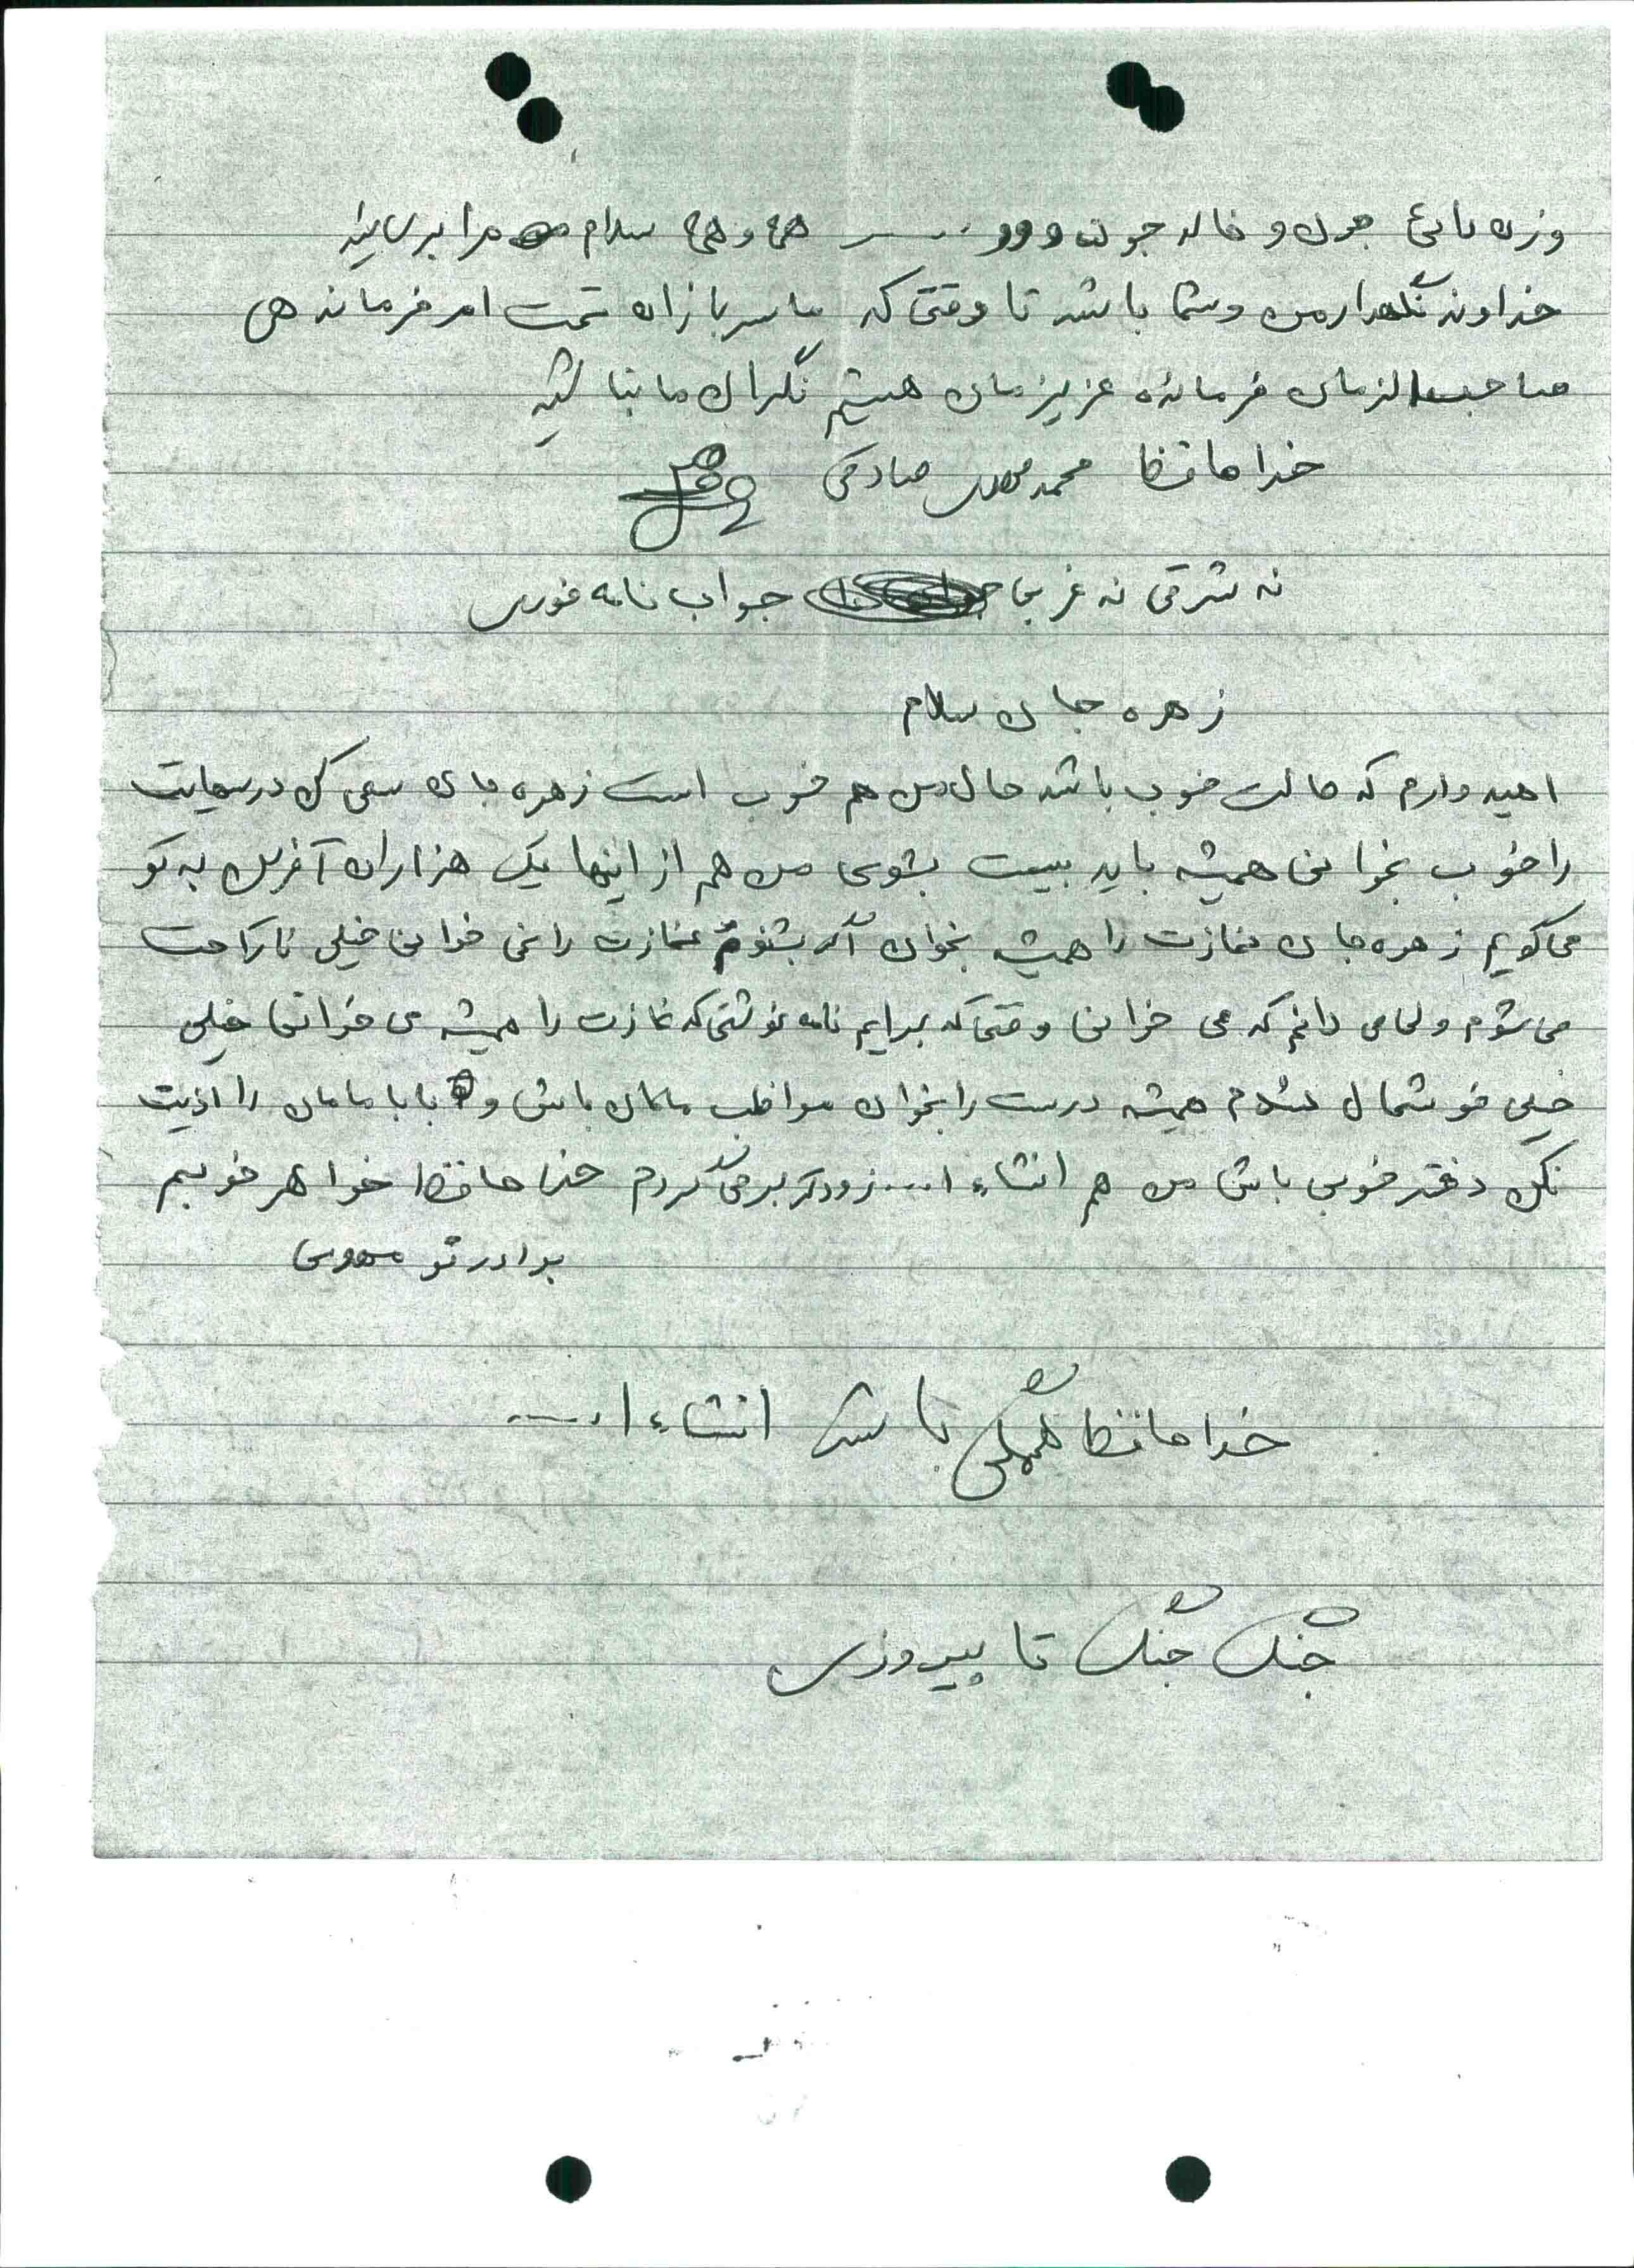 وزن دائی جون و خاله جون و و و ..... همه و همه سلام مرا برسانید
خداوند نگهدار من و شما باشد تا وقتی که ما سربازان تحت امر فرماندهی
صاحب الزمان فرمانده عزیزمان هستیم نگران ما نباشید
خداحافظ محمد مهدی صادقی
نه شرقی نه غربی جواب نامه فوری
زهره جان سلام
امیدوارم که حالت خوب باشد حال من هم خوب است زهره جان سعی کن درسهایت
را خوب بخوانی همیشه باید بیست بشوی من هم از اینجا یک هزاران آفرین به تو
می گویم زهره جان نمازت را همیشه بخوان اگر بشنوم نمازت را نمی خوانی خیلی ناراحت
می شوم ولی می دانم که می خوانی وقتی که برایم نامه نوشتی که نمازت را همیشه می خوانی خیلی
خیلی خوشحال شدم همیشه درست را بخوان مواظب مامان باش و بابا مامان را اذیت
نکن دختر خوبی باش من هم انشاء ا... زودتر برمی گردم خداحافظ خواهر خوبم
برادر تو مهدی
خداحافظ همگی باشد انشاء ا...
جنگ جنگ تا پیروزی